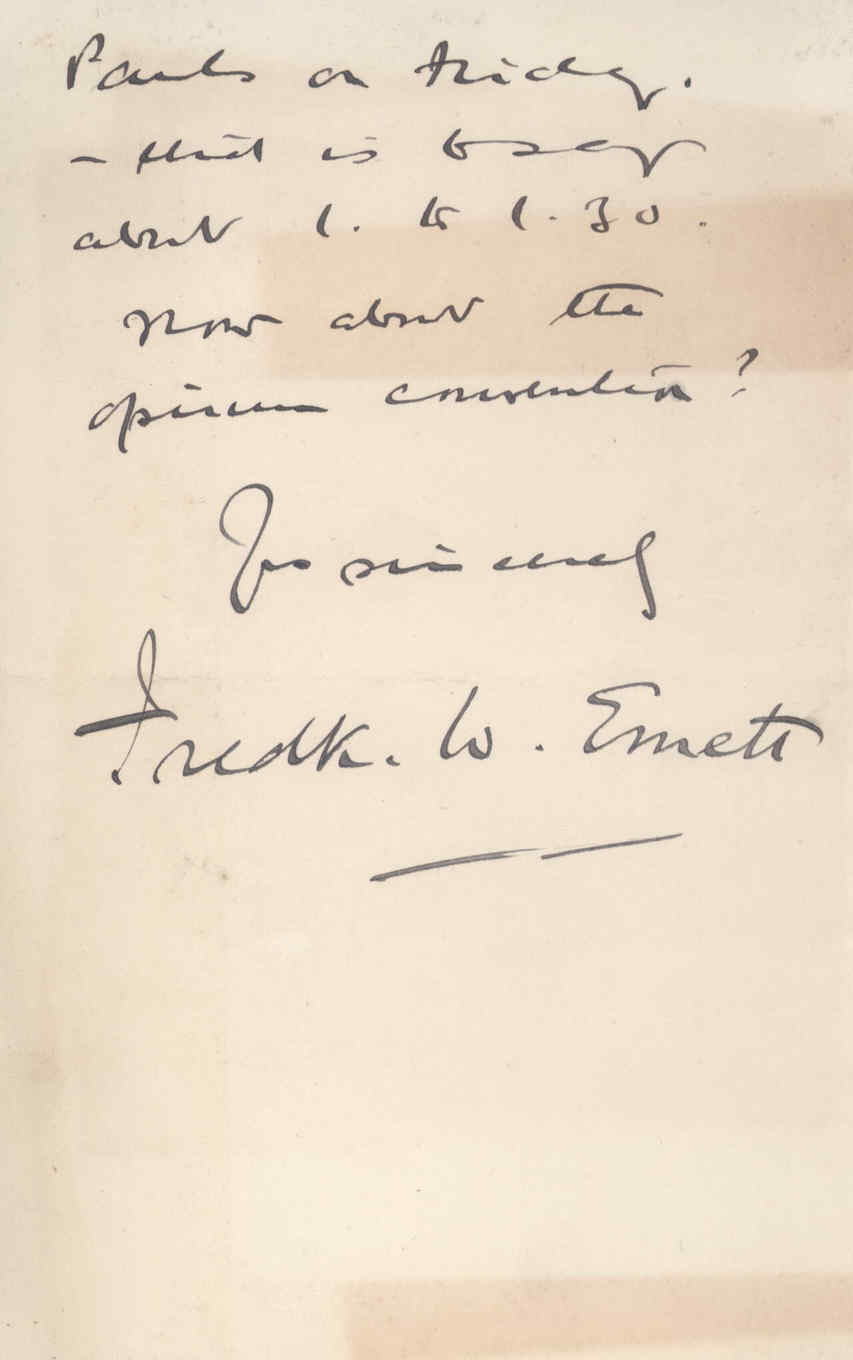 Pauls on Friday.
– that is to say
about 1. to 1.30.
Now about the
opium convention?
Yrs sincerely
Fredk. W. Emett